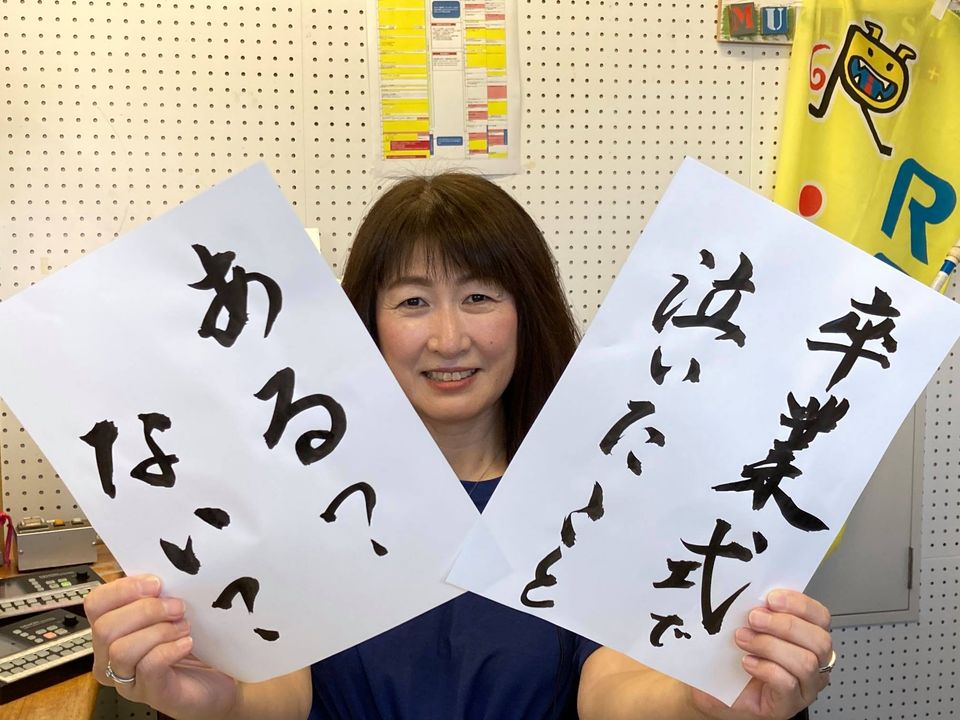 卒業式で
泣いたこと
ある?
ない?
MU
R